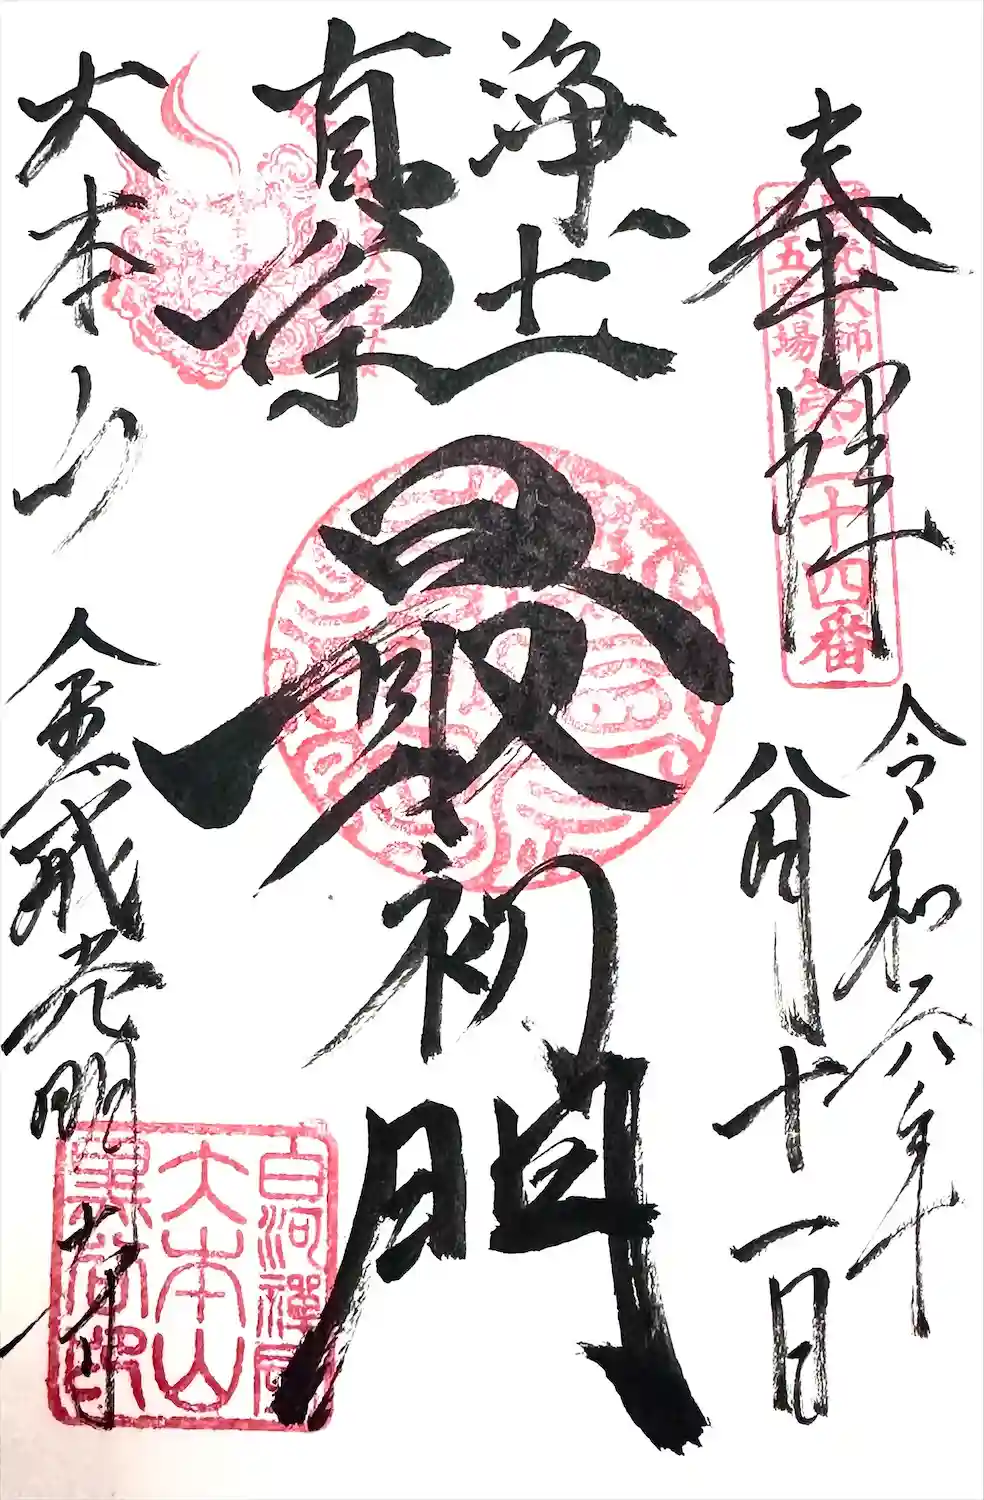 奉拝
大師
霊場
第二十四番
令和六年
八月十一日
浄土
真宗
最初門
大本山
金戒光明寺
白河禅房
大本山
黒谷印